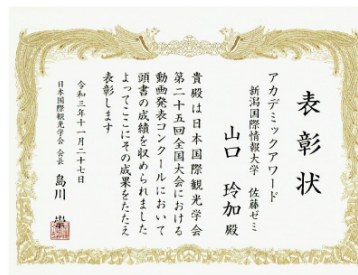 表彰状
アカデミックアワード
新潟国際情報大学 佐藤ゼミ
山口 玲加殿
貴殿は日本国際観光学会
第二十五回全国大会における
動画発表コンクールにおいて
頭書の成績を収められました
よってここにその成果をたたえ
表彰します
令和三年十一月二十七日
日本国際観光学会 会長
島川 崇